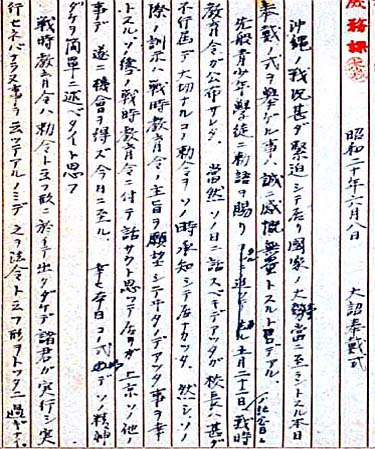 庶務課
昭和二十年六月八日　大詔奉戴式
沖縄ノ戦況甚ダ緊迫シテ居リ国家ノ大事当ニ至ラントスル本日
奉戴ノ式ヲ挙ゲル事ハ誠ニ感慨無量トスル所デアル。
先般青少年学徒ニ勅語ヲ賜リ 五月二十二日 戦時
教育令ガ公布サレタ。 当然ソノ日ニ話スベキデアッタガ校長ハ甚ダ
不行届デ大切ナルコノ勅令ヲソノ時承知シテ居ナカッタ。然シソノ
際ノ訓示ハ戦時教育令ノ主旨ヲ願望シテ ノデアッタ事ヲ幸
トスル。ソノ後ノ戦時教育令ニ付テ話サウト思ッテ居タガ上京ソノ他ノ
事デ遂ニ機会ヲ得ズ今日ニ至ル。 幸ヒ本日コノ式 デソノ精神
ダケヲ簡単ニ述ベタイト思フ
戦時教育令ハ勅令ト云フ形ニ於イテ出タダケデ諸君ガ実行シ実
行セネバナラヌ事ヲ云ッテアルノミデ之ヲ法令ト云フ形ヲトッタニ過ギナイ。